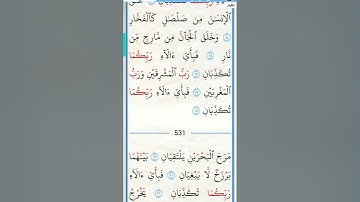 رَبِّكُمَا تُكَذِّبَانِ ۝ خَلَقَ
ٱلْإِنسَٰنَ مِن صَلْصَٰلٍ كَٱلْفَخَّارِ
۝ وَخَلَقَ ٱلْجَآنَّ مِن مَّارِجٍ مِّن
نَّارٍ ۝ فَبِأَيِّ ءَالَآءِ رَبِّكُمَا
تُكَذِّبَانِ ۝ رَبُّ ٱلْمَشْرِقَيْنِ وَرَبُّ
ٱلْمَغْرِبَيْنِ ۝ فَبِأَيِّ ءَالَآءِ رَبِّكُمَا
تُكَذِّبَانِ ۝
531
مَرَجَ ٱلْبَحْرَيْنِ يَلْتَقِيَانِ ۝ بَيْنَهُمَا
بَرْزَخٌ لَّا يَبْغِيَانِ ۝ فَبِأَيِّ ءَالَآءِ
رَبِّكُمَا تُكَذِّبَانِ ۝ يَخْرُجُ